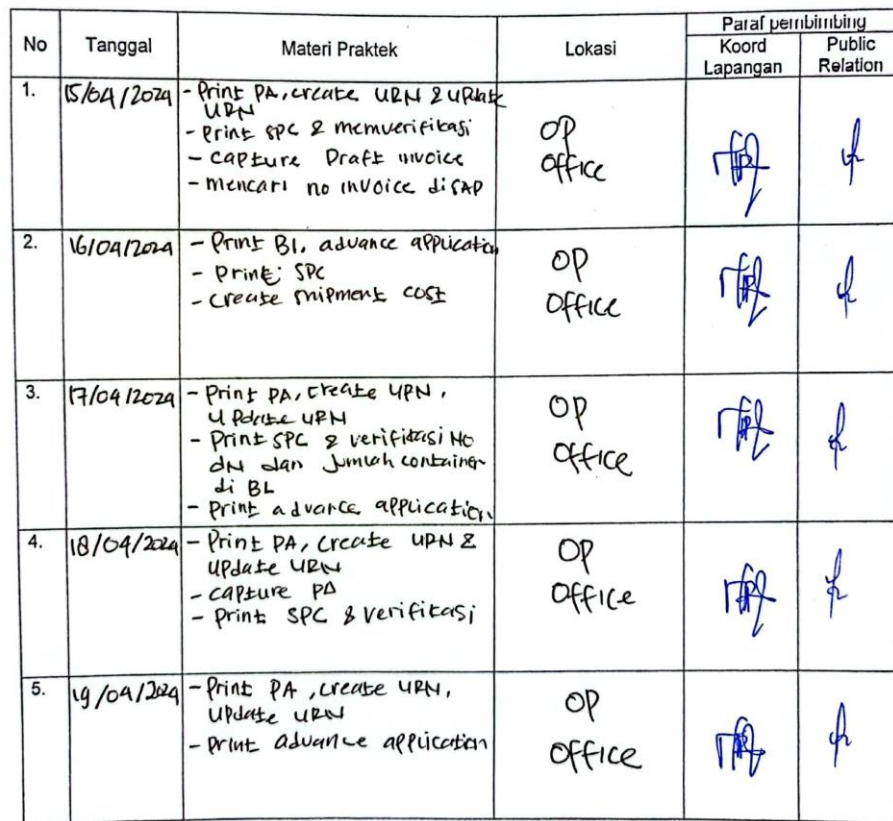 Paraf pembimbing
No Tanggal Materi Praktek Lokasi Koord Lapangan Public Relation
1. 15/04/2024 - Print PA, create URN & update
URN
- Print SPC & memverifikasi
- Capture Draft invoice
- mencari no invoice di SAP
OP
Office
2. 16/04/2024 - Print BI. advance application
- Print SPC
- create shipment cost
OP
Office
3. 17/04/2024 - Print PA, create URN,
Update URN
- Print SPC & verifikasi No
dN dan Jumlah container
di BL
- Print advance application
OP
Office
4. 18/04/2024 - Print PA, create URN &
update URN
- capture PA
- Print SPC & verifikasi
OP
Office
5. 19/04/2024 - Print PA, create URN,
update URN
- Print advance application
OP
Office